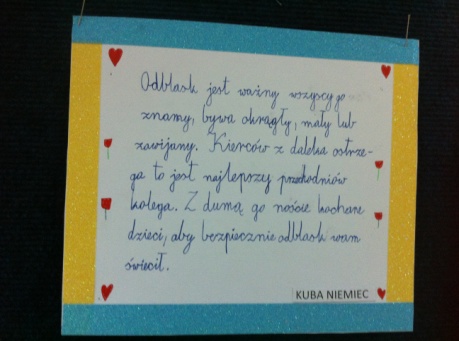 Odblask jest ważny wszyscy go
znamy, bywa okrągły, mały lub
zawijany. Kierców z daleka ostrze-
ga to jest najlepszy przechodniów
kolega. Z dumą go noście kochane
dzieci, aby bezpiecznie odblask wam
świecił.
KUBA NIEMIEC